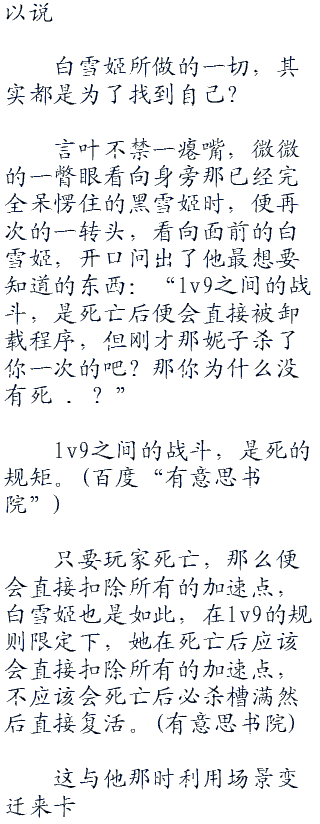 以说
白雪姬所做的一切，其
实都是为了找到自己？
言叶不禁一瘪嘴，微微
的一瞥眼看向身旁那已经完
全呆愣住的黑雪姬时，便再
次的一转头，看向面前的白
雪姬，开口问出了他最想要
知道的东西：“lv9之间的战
斗，是死亡后便会直接被卸
载程序，但刚才那妮子杀了
你一次的吧？那你为什么没
有死 ．？”
lv9之间的战斗，是死的
规矩。(百度“有意思书
院”)
只要玩家死亡，那么便
会直接扣除所有的加速点，
白雪姬也是如此，在lv9的规
则限定下，她在死亡后应该
会直接扣除所有的加速点，
不应该会死亡后必杀槽满然
后直接复活。(有意思书院)
这与他那时利用场景变
迁来卡